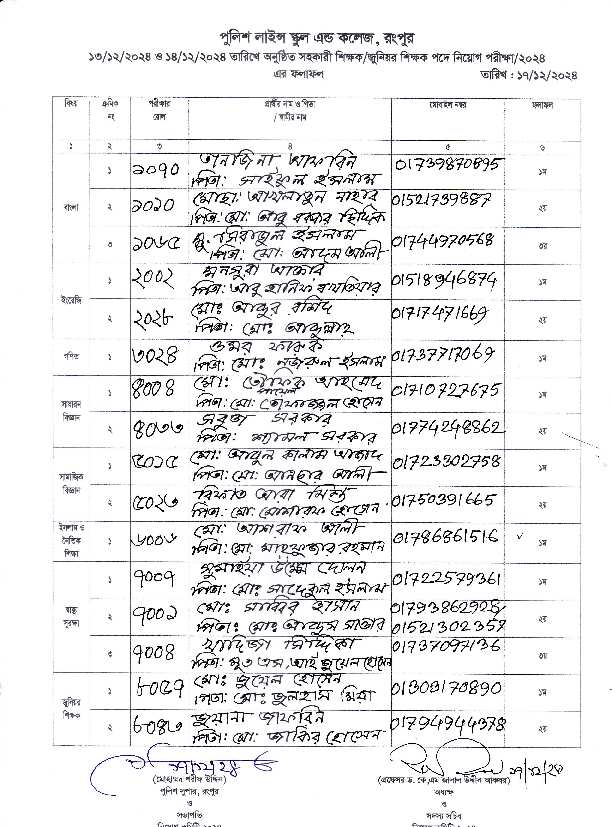 পুলিশ লাইন্স স্কুল এন্ড কলেজ, রংপুর
১৩/১২/২০২৪ ও ১৪/১২/২০২৪ তারিখে অনুষ্ঠিত সহকারী শিক্ষক/জুনিয়র শিক্ষক পদে নিয়োগ পরীক্ষা/২০২৪
এর ফলাফল
তারিখ : ১৭/১২/২০২৪
বিষয় ক্রমিক নং পরীক্ষার রোল প্রার্থীর নাম ও পিতা / স্বামীর নাম মোবাইল নম্বর ফলাফল
১ ২ ৩ ৪ ৫ ৬
বাংলা ১ ১০৭০ তানজিনা আফরিন 01739870895 ১ম
পিতা: সাইফুল ইসলাম
২ ১০১০ মোছা: নাহার 01521739887 ২য়
পিতা: মো: আবু বক্কর ছিদ্দিক
৩ ১০৬৫ মু: সিরাজুল ইসলাম 01744970568 ৩য়
পিতা: মো: আদম আলী
ইংরেজি ১ ২০০২ মনসুরা আক্তার 01518946874 ১ম
পিতা: আবু হানিফ
২ ২০২৮ মোঃ আব্দুর রশিদ 01717471669 ২য়
পিতা: মোঃ আব্দুল্লাহ
গণিত ১ ৩০২৪ ওমর ফারুক 01737717069 ১ম
পিতা: মোঃ নজরুল ইসলাম
সাধারন বিজ্ঞান ১ ৪০০৪ মো: তৌফিক আহমেদ পায়েল 01710727675 ১ম
পিতা: মো: তোফাজ্জল হোসেন
২ ৪০৩৩ সবুজ সরকার 01774248862 ২য়
পিতা: শ্যামল সরকার
সামাজিক বিজ্ঞান ১ ৫০১৫ মো: আবুল কালাম আজাদ 01723302758 ১ম
পিতা: মো: আনছার আলী
২ ৫০২৩ রিফাত আরা 01750391665 ২য়
পিতা: মো: মোশারফ হোসেন
ইসলাম ও নৈতিক শিক্ষা ১ ৬০০৬ মো: আশরাফ আলী 01786861516 ১ম
পিতা: মো: মাহফুজার রহমান
স্বাস্থ্য সুরক্ষা ১ ৭০০৭ সুমাইয়া উম্মে দোলন 01722579361 ১ম
পিতা: মোঃ সাদেকুল ইসলাম
২ ৭০০১ মোঃ সাব্বির হাসান 01793862928 ২য়
পিতাঃ মোঃ আব্দুস সাত্তার 01521302357
৩ ৭০০৪ খাদিজা সিদ্দিকা 01737097136 ৩য়
পিতা: মৃত এস, আই জুয়েল হোসেন
জুনিয়র শিক্ষক ১ ৮০৫৭ মো: জুয়েল হোসেন 01303170890 ১ম
পিতা: মোঃ জুলহাস মিয়া
২ ৮০৪৩ জুয়ানা জাফরিন 01794944378 ২য়
পিতা: মো: জাকির হোসেন
(মোহাম্মদ শরীফ উদ্দিন)
পুলিশ সুপার, রংপুর
ও
সভাপতি
(প্রফেসর ড. কে,এম জালাল উদ্দীন আকবর)
অধ্যক্ষ
ও
সদস্য সচিব